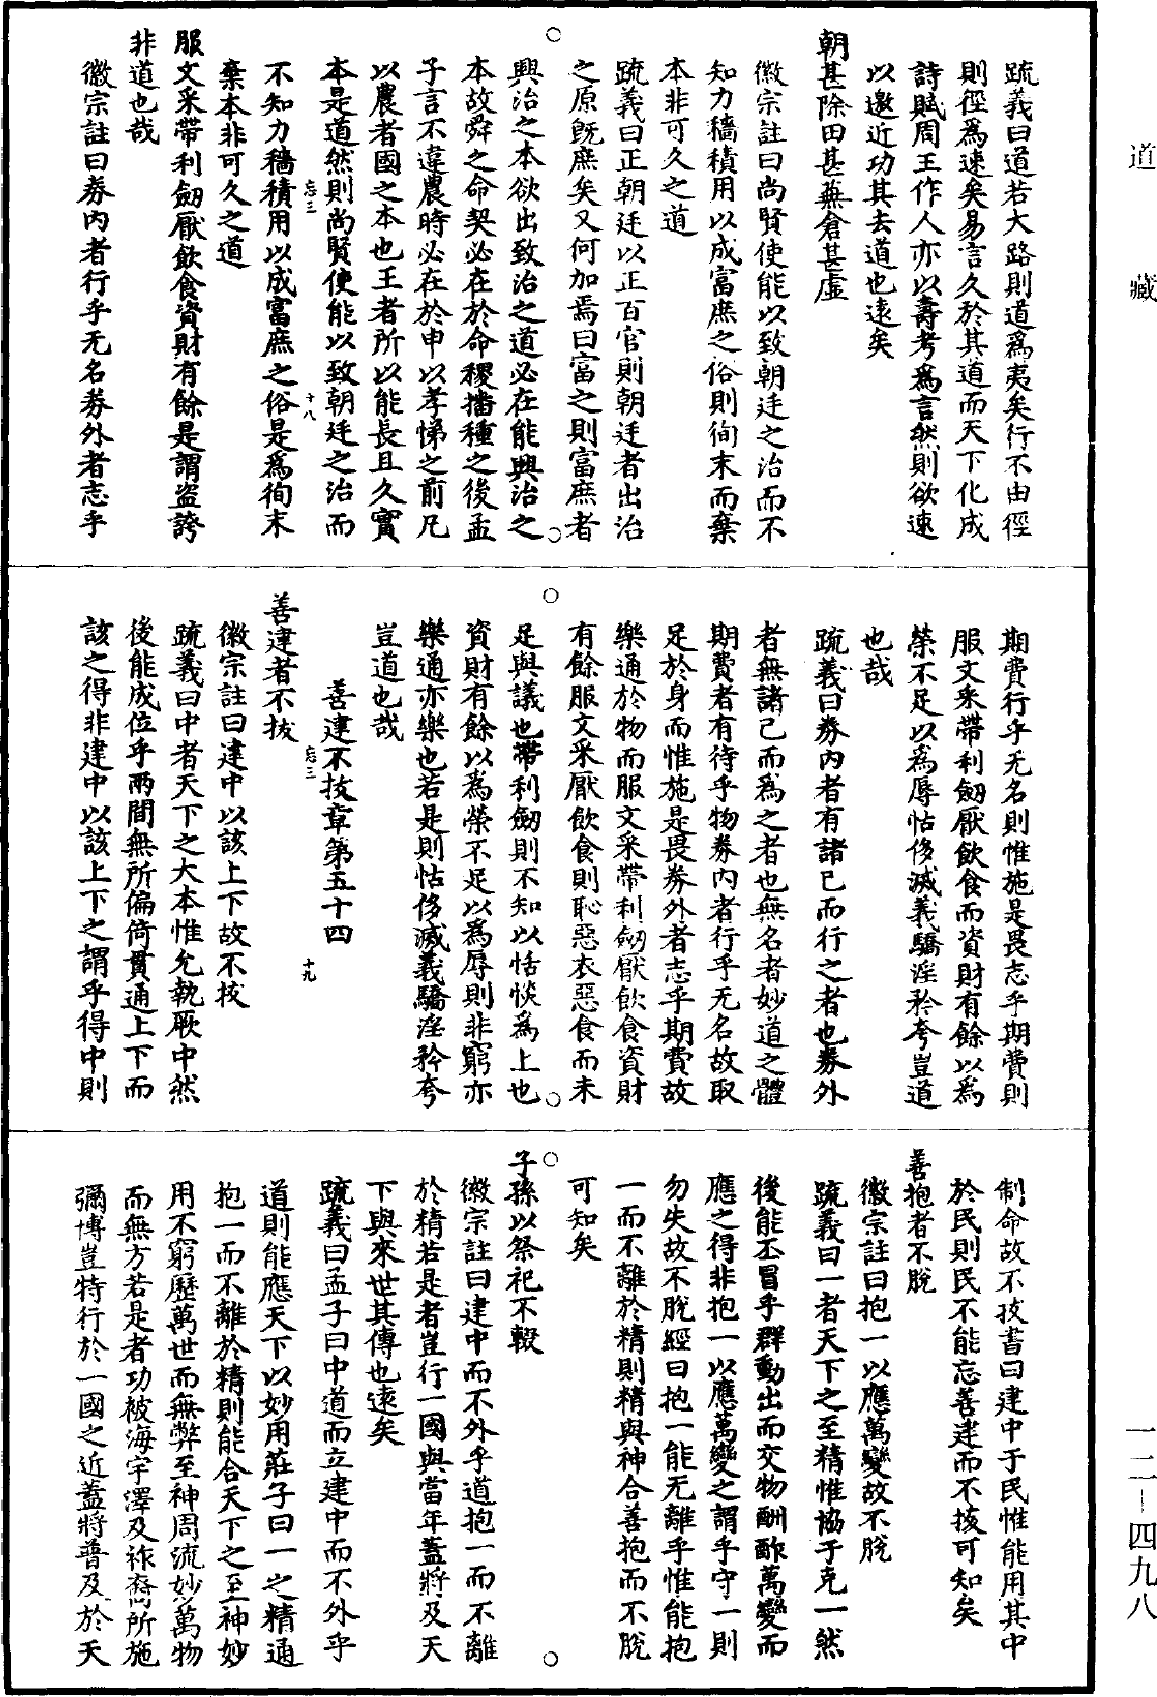 道藏
疏義曰道若大路則道爲夷矣行不由徑
則徑爲速矣易言久於其道而天下化成
詩賦周王作人亦以壽考爲言然則欲速
以邀近功其去道也遠矣
朝甚除田甚蕪倉甚虛
徽宗註曰尚賢使能以致朝廷之治而不
知力穡積用以成富庶之俗則徇末而棄
本非可久之道
疏義曰正朝廷以正百官則朝廷者出治
之原既庶矣又何加焉曰富之則富庶者
興治之本欲出致治之道必在能興治之
本故舜之命契必在於命稷播種之後孟
子言不違農時必在於申以孝悌之前凡
以農者國之本也王者所以能長且久實
本是道然則尚賢使能以致朝廷之治而
忘三 十八
不知力穡積用以成富庶之俗是爲徇末
棄本非可久之道
服文采帶利劒厭飲食資財有餘是謂盜誇
非道也哉
徽宗註曰券內者行乎无名券外者志乎
期費行乎无名則惟施是畏志乎期費則
服文采帶利劒厭飲食而資財有餘以爲
榮不足以爲辱怙侈滅義驕淫矜夸豈道
也哉
疏義曰券內者有諸己而行之者也券外
者無諸己而爲之者也無名者妙道之體
期費者有待乎物券內者行乎无名故取
足於身而惟施是畏券外者志乎期費故
樂通於物而服文采帶利劒厭飲食資財
有餘服文采厭飲食則恥惡衣惡食而未
足與議也帶利劒則不知以恬惔爲上也
資財有餘以爲榮不足以爲辱則非窮亦
樂通亦樂也若是則怙侈滅義驕淫矜夸
豈道也哉
善建不拔章第五十四
忘三 十九
善建者不拔
徽宗註曰建中以該上下故不拔
疏義曰中者天下之大本惟允執厥中然
後能成位乎兩間無所偏倚貫通上下而
該之得非建中以該上下之謂乎得中則
制命故不拔書曰建中于民惟能用其中
於民則民不能忘善建而不拔可知矣
善抱者不脫
徽宗註曰抱一以應萬變故不脫
疏義曰一者天下之至精惟協于克一然
後能丕冒乎群動出而交物酬酢萬變而
應之得非抱一以應萬變之謂乎守一則
勿失故不脫經曰抱一能无離乎惟能抱
一而不離於精則精與神合善抱而不脫
可知矣
子孫以祭祀不輟
徽宗註曰建中而不外乎道抱一而不離
於精若是者豈行一國與當年蓋將及天
下與來世其傳也遠矣
疏義曰孟子曰中道而立建中而不外乎
道則能應天下以妙用莊子曰一之精通
抱一而不離於精則能合天下之至神妙
用不窮歷萬世而無弊至神周流妙萬物
而無方若是者功被海宇澤及祚裔所施
彌博豈特行於一國之近蓋將普及於天
一二—四九八